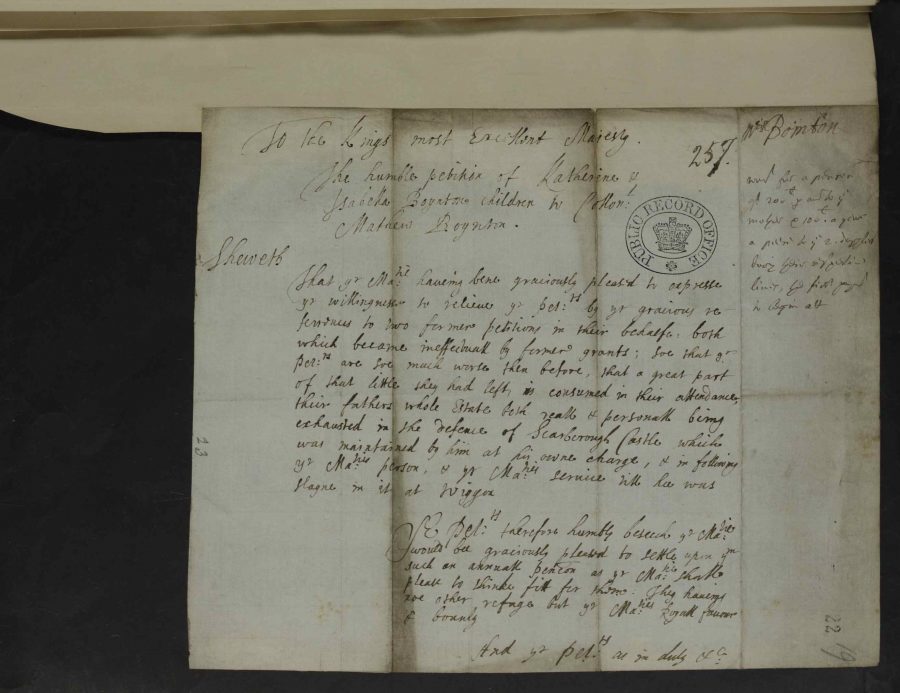 To the Kings most Excellent Majesty.
257.
The humble petition of Katherine &
Isabella Boynton children to Collon:
Mathew Boynton.
Sheweth
That yr Ma:tie haveing bene graciously pleas'd to expresse
yr willingnesse to relieve yr pet:rs by yr gracious re-
ferences to two former petitions in their behalfe, both
which became ineffectuall by former grants; soe that yr
Pet:rs are soe much worse then before, that a great part
of that little they had left, is consumed in their attendance
their fathers whole Estate both reall & personall being
exhausted in the defence of Scarborough Castle which
was maintained by him at his owne charge, & in following
yr Ma:ties person, & yr Ma:ties service till hee was
slayne in it at Wiggon
Yr Pet:rs therefore humbly beseech yr Ma:tie
would bee graciously pleased to settle upon ym
such an annuall pencon as yr Ma:tie shall
please to thinke fitt for them. They haveing
noe other refuge but yr Ma:ties Royall favour
& bounty
And yr pet:rs as in duty &c
PUBLIC RECORD OFFICE
Bointon
a pencon
mother
a yeare
lives
to begin att
23
22
19